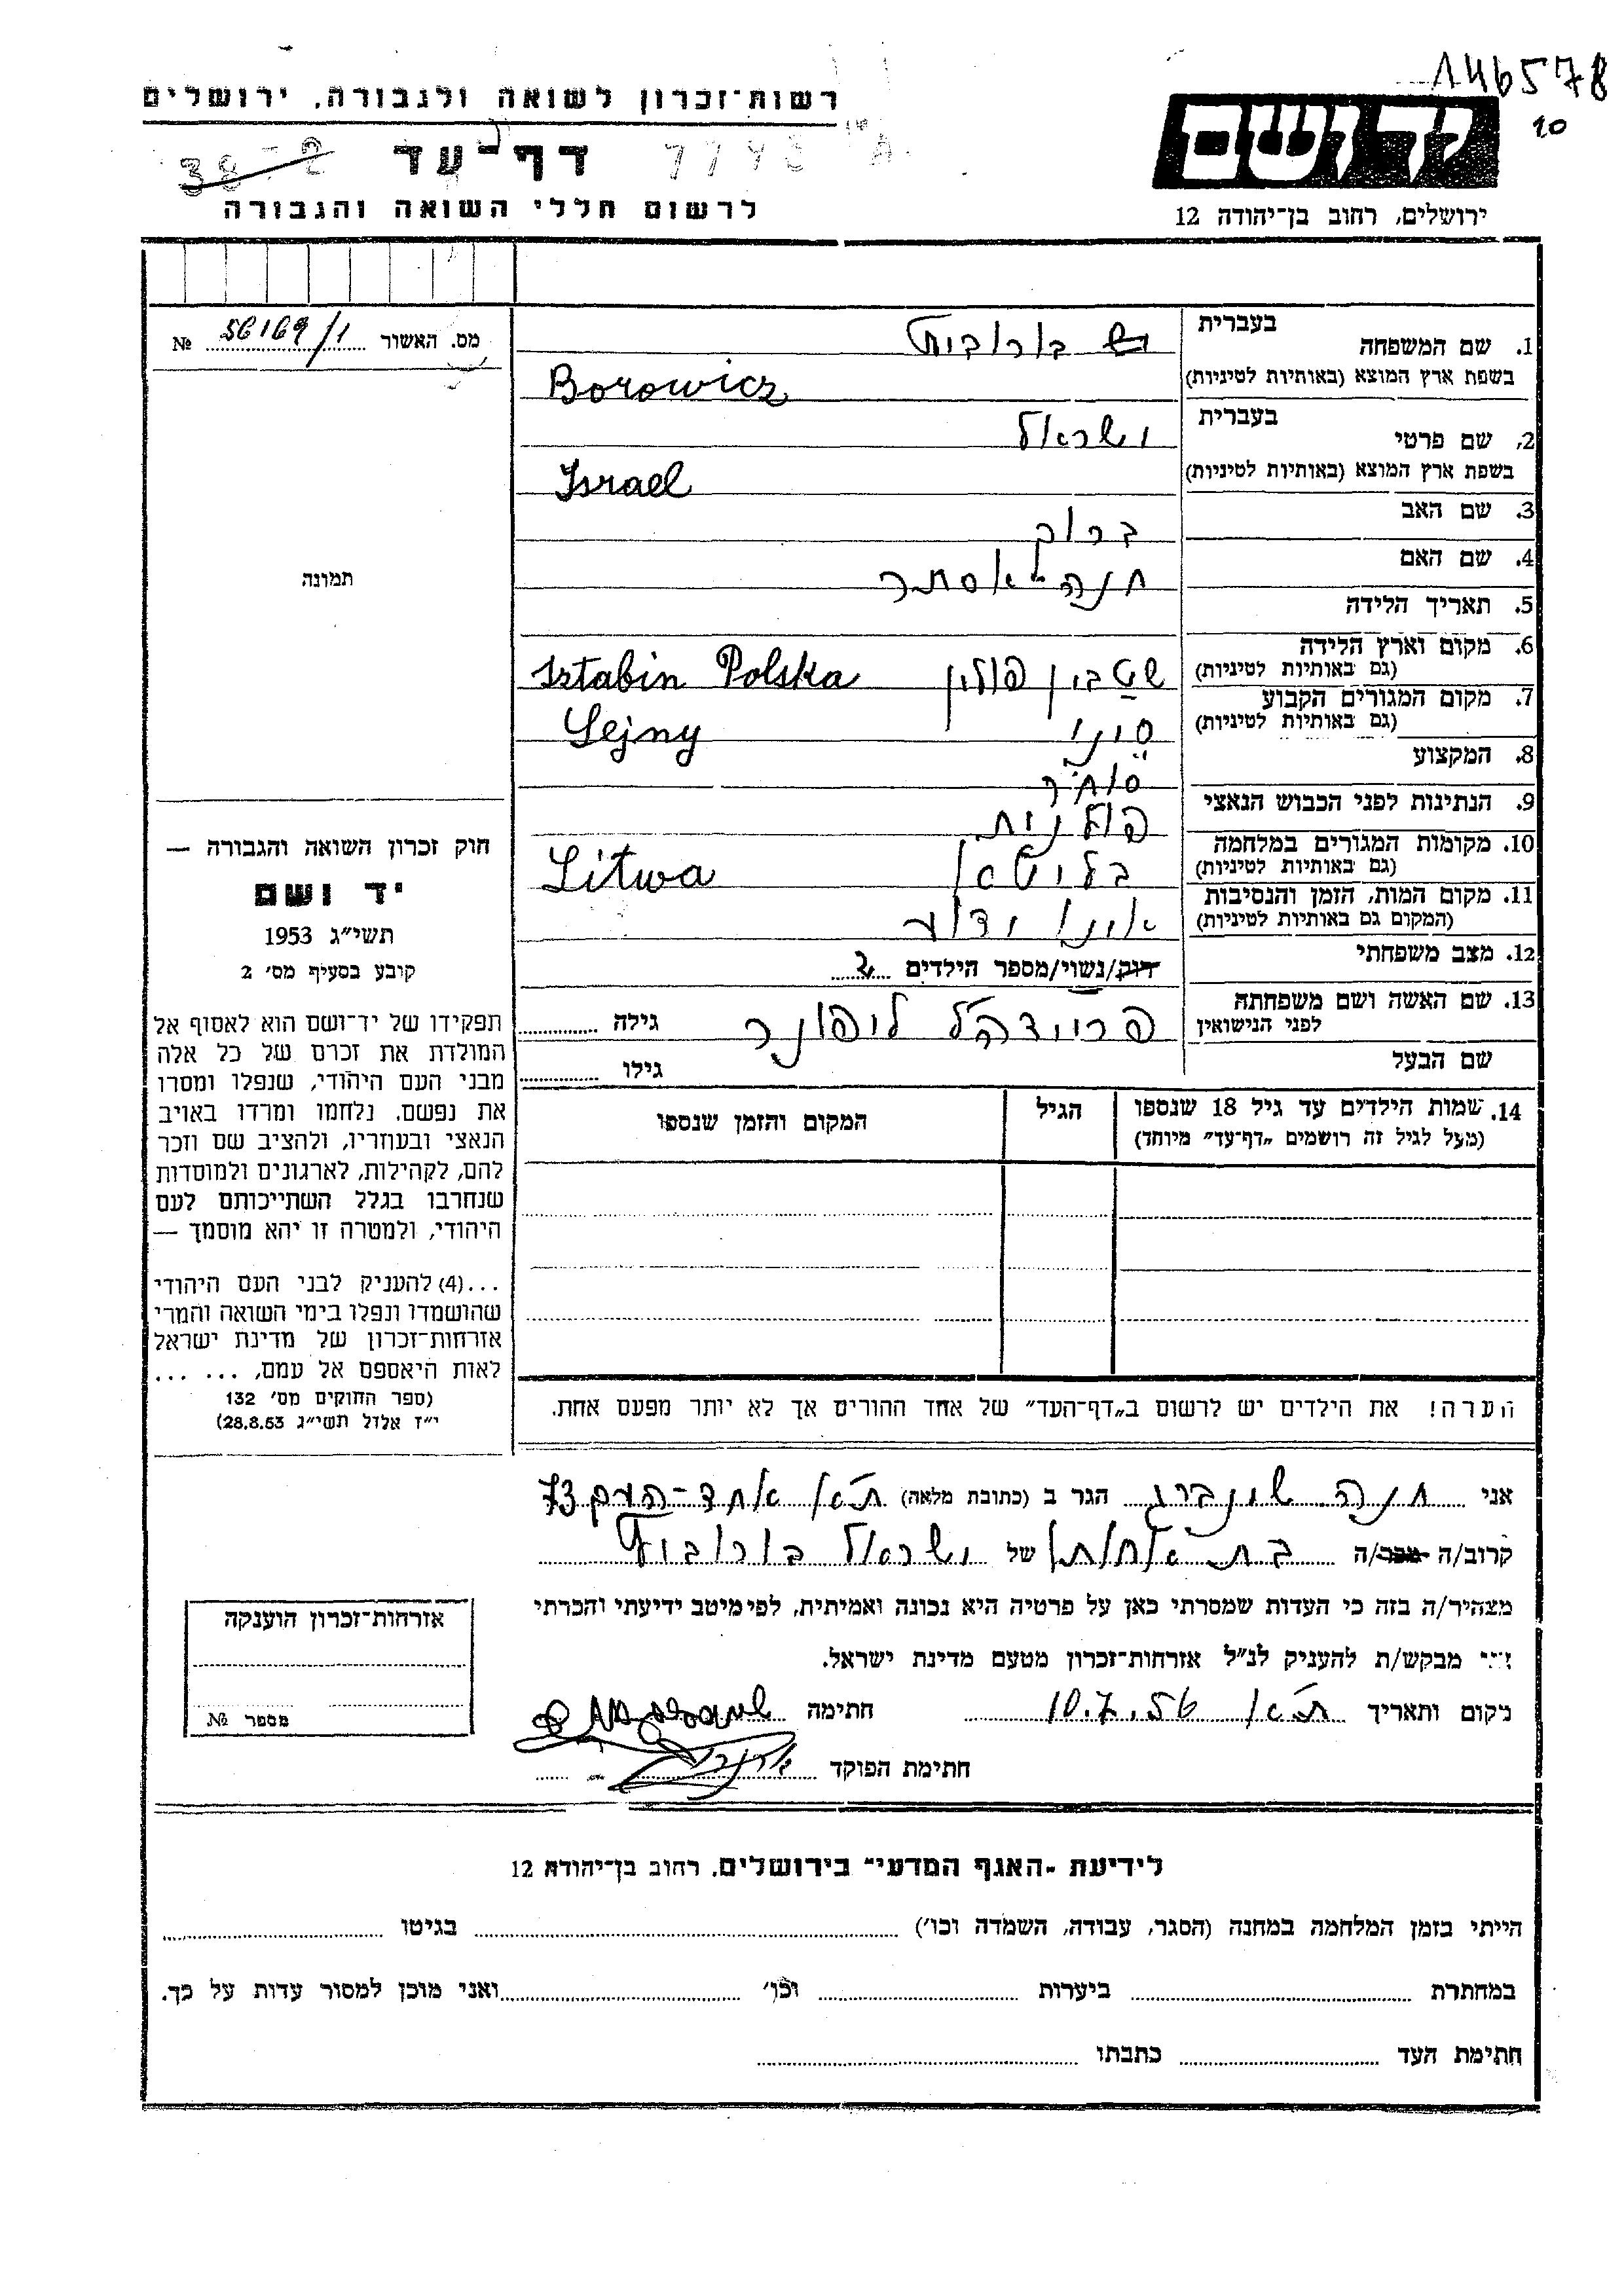 146578
10
רשות־זכרון לשואה ולגבורה, ירושלים
דף־עד
38-2
7748
A
לרשום חללי השואה והגבורה
ידושם
ירושלים, רחוב בן־יהודה 12
מס. האשור 56169/1 №
תמונה
1. שם המשפחה
בעברית
בורוביץ
בשפת ארץ המוצא (באותיות לטיניות)
Borowicz
2. שם פרטי
בעברית
ישראל
בשפת ארץ המוצא (באותיות לטיניות)
Israel
3. שם האב
ברוך
4. שם האם
חנה־אסתר
5. תאריך הלידה
6. מקום וארץ הלידה
(גם באותיות לטיניות)
שטבין פולין Sztabin Polska
7. מקום המגורים הקבוע
(גם באותיות לטיניות)
סיני Sejny
8. המקצוע
סוחר
9. הנתינות לפני הכבוש הנאצי
פולנית
10. מקומות המגורים במלחמה
(גם באותיות לטיניות)
בליטא Litwa
11. מקום המות, הזמן והנסיבות
(המקום גם באותיות לטיניות)
אינו ידוע
12. מצב משפחתי
רוק/נשוי/מספר הילדים 2
13. שם האשה ושם משפחתה
לפני הנישואין
פריידה'ל ליפונר
גילה
שם הבעל
גילו
14. שמות הילדים עד גיל 18 שנספו
(מעל לגיל זה רושמים „דף־עד” מיוחד)
הגיל
המקום והזמן שנספו
הערה! את הילדים יש לרשום ב„דף־העד” של אחד ההורים אך לא יותר מפעם אחת.
חוק זכרון השואה והגבורה —
יד ושם
תשי״ג 1953
קובע בסעיף מס׳ 2
תפקידו של יד־ושם הוא לאסוף אל
המולדת את זכרם של כל אלה
מבני העם היהודי, שנפלו ומסרו
את נפשם, נלחמו ומרדו באויב
הנאצי ובעוזריו, ולהציב שם וזכר
להם, לקהילות, לארגונים ולמוסדות
שנחרבו בגלל השתייכותם לעם
היהודי, ולמטרה זו יהא מוסמך —
...(4) להעניק לבני העם היהודי
שהושמדו ונפלו בימי השואה והמרי
אזרחות־זכרון של מדינת ישראל
לאות היאספם אל עמם, ... ...
(ספר החוקים מס׳ 132
י״ז אלול תשי״ג 28.8.53)
אני חנה שינברג הגר ב (כתובת מלאה) ת״א אחד־העם 73
קרוב/ה מכר/ה בת אחותו של ישראל בורוביץ
מצהיר/ה בזה כי העדות שמסרתי כאן על פרטיה היא נכונה ואמיתית, לפי מיטב ידיעתי והכרתי
אני מבקש/ת להעניק לנ״ל אזרחות־זכרון מטעם מדינת ישראל.
מקום ותאריך ת״א 10.7.56 חתימה
חתימת הפוקד
אזרחות־זכרון הוענקה
מספר №
לידיעת ״האגף המדעי״ בירושלים, רחוב בן־יהודה 12
הייתי בזמן המלחמה במחנה (הסגר, עבודה, השמדה וכו׳) בגיטו
במחתרת ביערות וכו׳ ואני מוכן למסור עדות על כך.
חתימת העד כתבתו